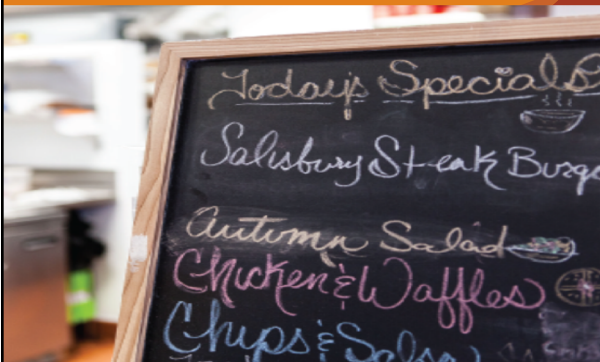 Today's Special
Salisbury Steak Burge
Autumn Salad
Chicken & Waffles
Chips & Salsa